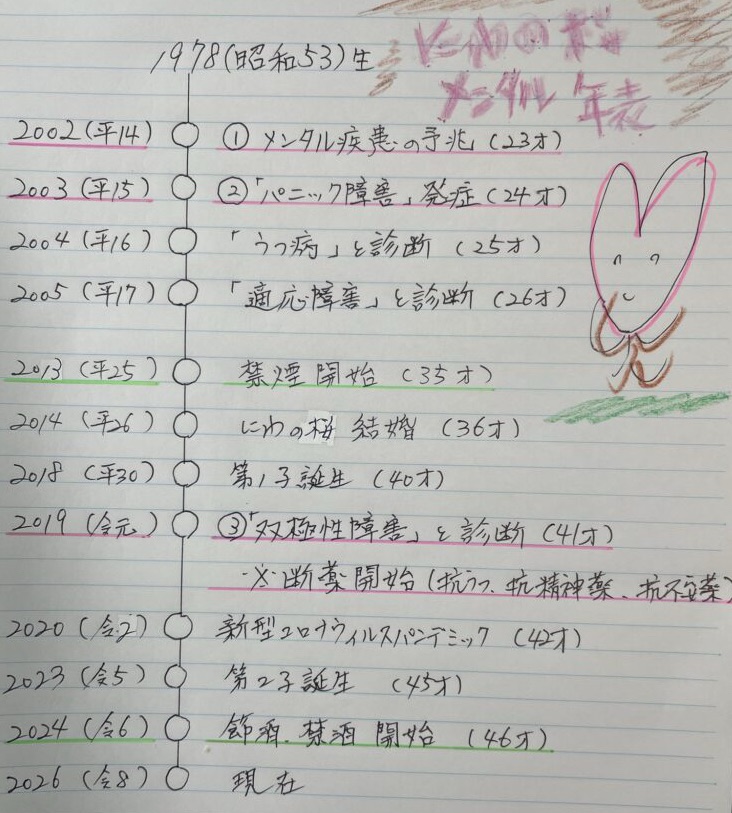 にわの桜
メンタル年表
1978(昭和53)生
2002(平14) ① メンタル疾患の予兆(23才)
2003(平15) ②「パニック障害」発症(24才)
2004(平16) 「うつ病」と診断(25才)
2005(平17) 「適応障害」と診断(26才)
2013(平25) 禁煙開始(35才)
2014(平26) にわの桜 結婚(36才)
2018(平30) 第1子誕生(40才)
2019(令元) ③「双極性障害」と診断(41才)
※断薬開始(抗うつ、抗精神薬、抗不安薬)
2020(令2) 新型コロナウィルスパンデミック(42才)
2023(令5) 第2子誕生(45才)
2024(令6) 節酒、禁酒 開始(46才)
2026(令8) 現在